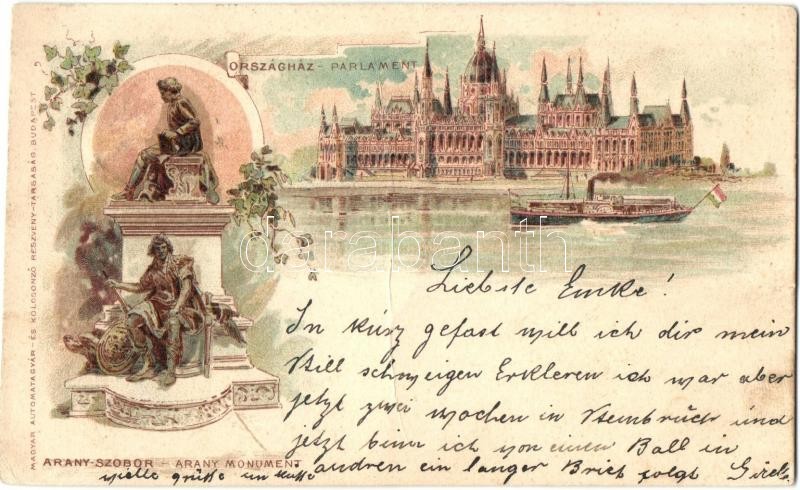 ORSZÁGHÁZ - PARLAMENT
MAGYAR AUTOMATAGYÁR- ÉS KÖLCSÖNZŐ RÉSZVÉNY-TÁRSASÁG, BUDAPEST
darabanth
Liebste Emke!
In kúrz gefast will ich dir mein
Still schweigen Erkleren ich war aber
jetzt zwei wochen in Steinbrúch únd
jetzt binn ich von einen Ball in
andren ein langer Brief folgt
ARANY-SZOBOR - ARANY MONUMENT
vielle grüsse un küsse